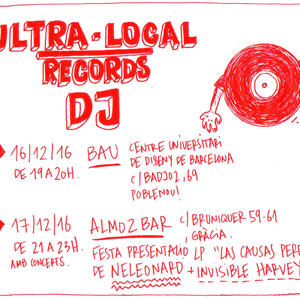 ULTRA-LOCAL
RECORDS
DJ
16/12/16 BAU CENTRE UNIVERSITARI
DE DISSENY DE BARCELONA
DE 19 A 20H. C/BADJOZ, 69
POBLENOU!
17/12/16 ALMO2BAR C/BRUNIQUER 59-61
DE 21 A 23H. , GRÀCIA.
AMB CONCERTS. FESTA PRESENTACIÓ LP "LAS CAUSAS PER
DE NELEONARD + INVISIBLE HARVEY